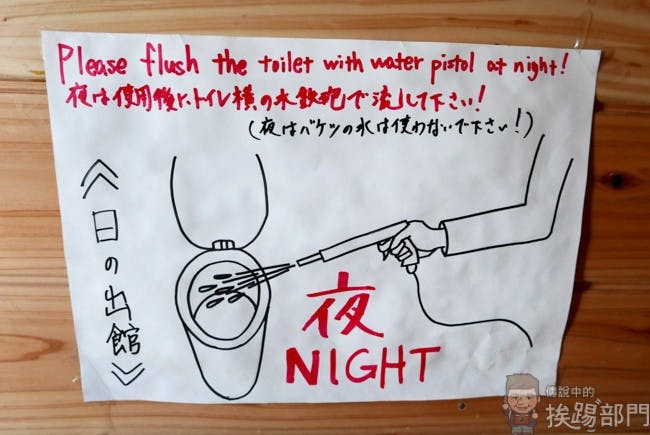 Please flush the toilet with water pistol at night!
夜は使用後に、トイレ横の水鉄砲で流して下さい!
(夜はバケツの水は使わないで下さい!)
《日の出館》
夜
NIGHT
傳說中的
挨踢部門